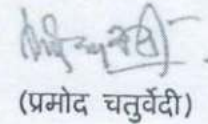 (प्रमोद चतुर्वेदी)